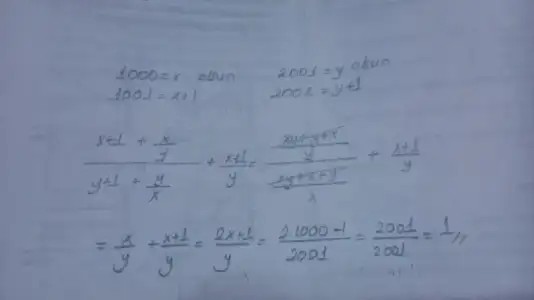 1000 = x olsun 2001 = y olsun
1001 = x+1 2002 = y+1
(x+1 + x/y) / (y+1 + y/x) + (x+1)/y = ((xy+y+x)/y) / ((xy+x+y)/x) + (x+1)/y
= x/y + (x+1)/y = (2x+1)/y = (2.1000-1)/2001 = 2001/2001 = 1,,